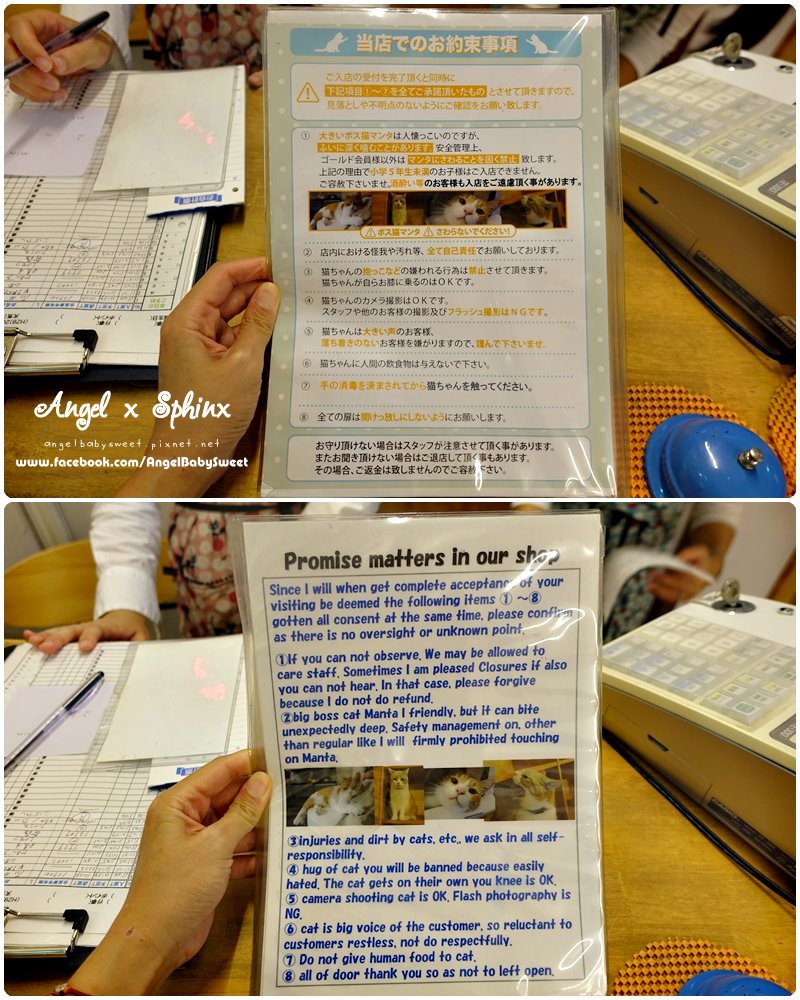 当店でのお約束事項
ご入店の受付を完了頂くと同時に
下記項目①～⑦を全てご承諾頂いたもの とさせて頂きますので、
見落としや不明点のないようにご確認をお願い致します。
① 大きいボス猫マンタは人懐っこいのですが、
ふいに深く噛むことがあります 安全管理上、
ゴールド会員様以外は マンタにさわることを固く禁止 致します。
上記の理由で小学５年生未満のお子様はご入店できません。
ご容赦下さいませ。酒酔い等のお客様も入店をご遠慮頂く事があります。
⚠ボス猫マンタ ⚠さわらないでください！
② 店内における怪我や汚れ等、全て自己責任でお願いしております。
③ 猫ちゃんの抱っこなどの嫌われる行為は禁止させて頂きます。
猫ちゃんが自らお膝に乗るのはＯＫです。
④ 猫ちゃんのカメラ撮影はＯＫです。
スタッフや他のお客様の撮影及びフラッシュ撮影はＮＧです。
⑤ 猫ちゃんは大きい声のお客様、
落ち着きのないお客様を嫌がりますので、謹んで下さいませ。
⑥ 猫ちゃんに人間の飲食物は与えないで下さい。
⑦ 手の消毒を済まされてから猫ちゃんを触ってください。
⑧ 全ての扉は開けっ放しにしないようにお願いします。
お守り頂けない場合はスタッフが注意させて頂く事があります。
またお聞き頂けない場合はご退店して頂く事もあります。
その場合、ご返金は致しませんのでご容赦下さい。
Angel x Sphinx
angelbabysweet.pixnet.net
www.facebook.com/AngelBabySweet
Promise matters in our shop
Since I will when get complete acceptance of your
visiting be deemed the following items ① ～⑧
gotten all consent at the same time, please confirm
as there is no oversight or unknown point.
①If you can not observe. We may be allowed to
care staff. Sometimes I am pleased Closures if also
you can not hear. In that case, please forgive
because I do not do refund.
②big boss cat Manta I friendly, but it can bite
unexpectedly deep. Safety management on, other
than regular like I will firmly prohibited touching
on Manta.
③injuries and dirt by cats, etc., we ask in all self-
responsibility.
④ hug of cat you will be banned because easily
hated. The cat gets on their own you Knee is OK.
⑤ camera shooting cat is OK. Flash photography is
NG.
⑥ cat is big voice of the customer, so reluctant to
customers restless, not do respectfully.
⑦ Do not give human food to cat.
⑧ all of door thank you so as not to left open.